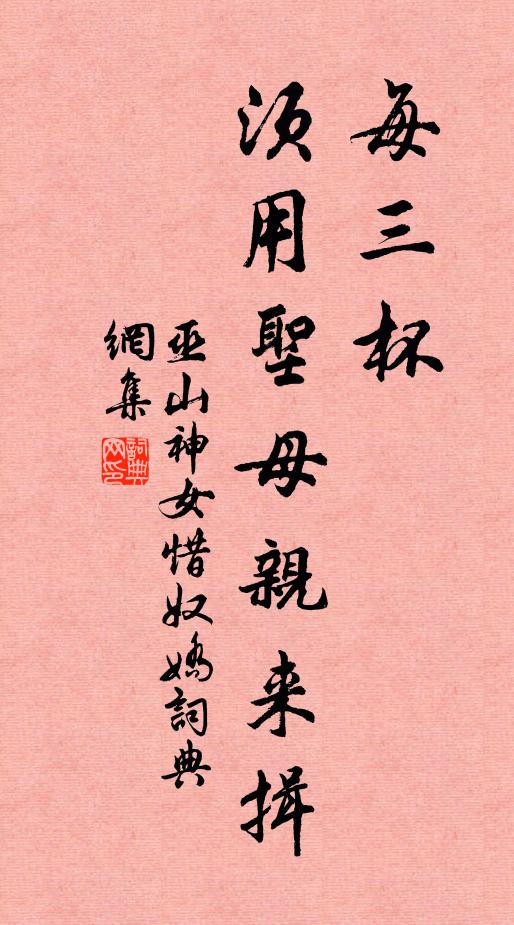 每三杯
须用聖母親来揖
巫山神女惜奴嬌詞典
網集
詞典網印